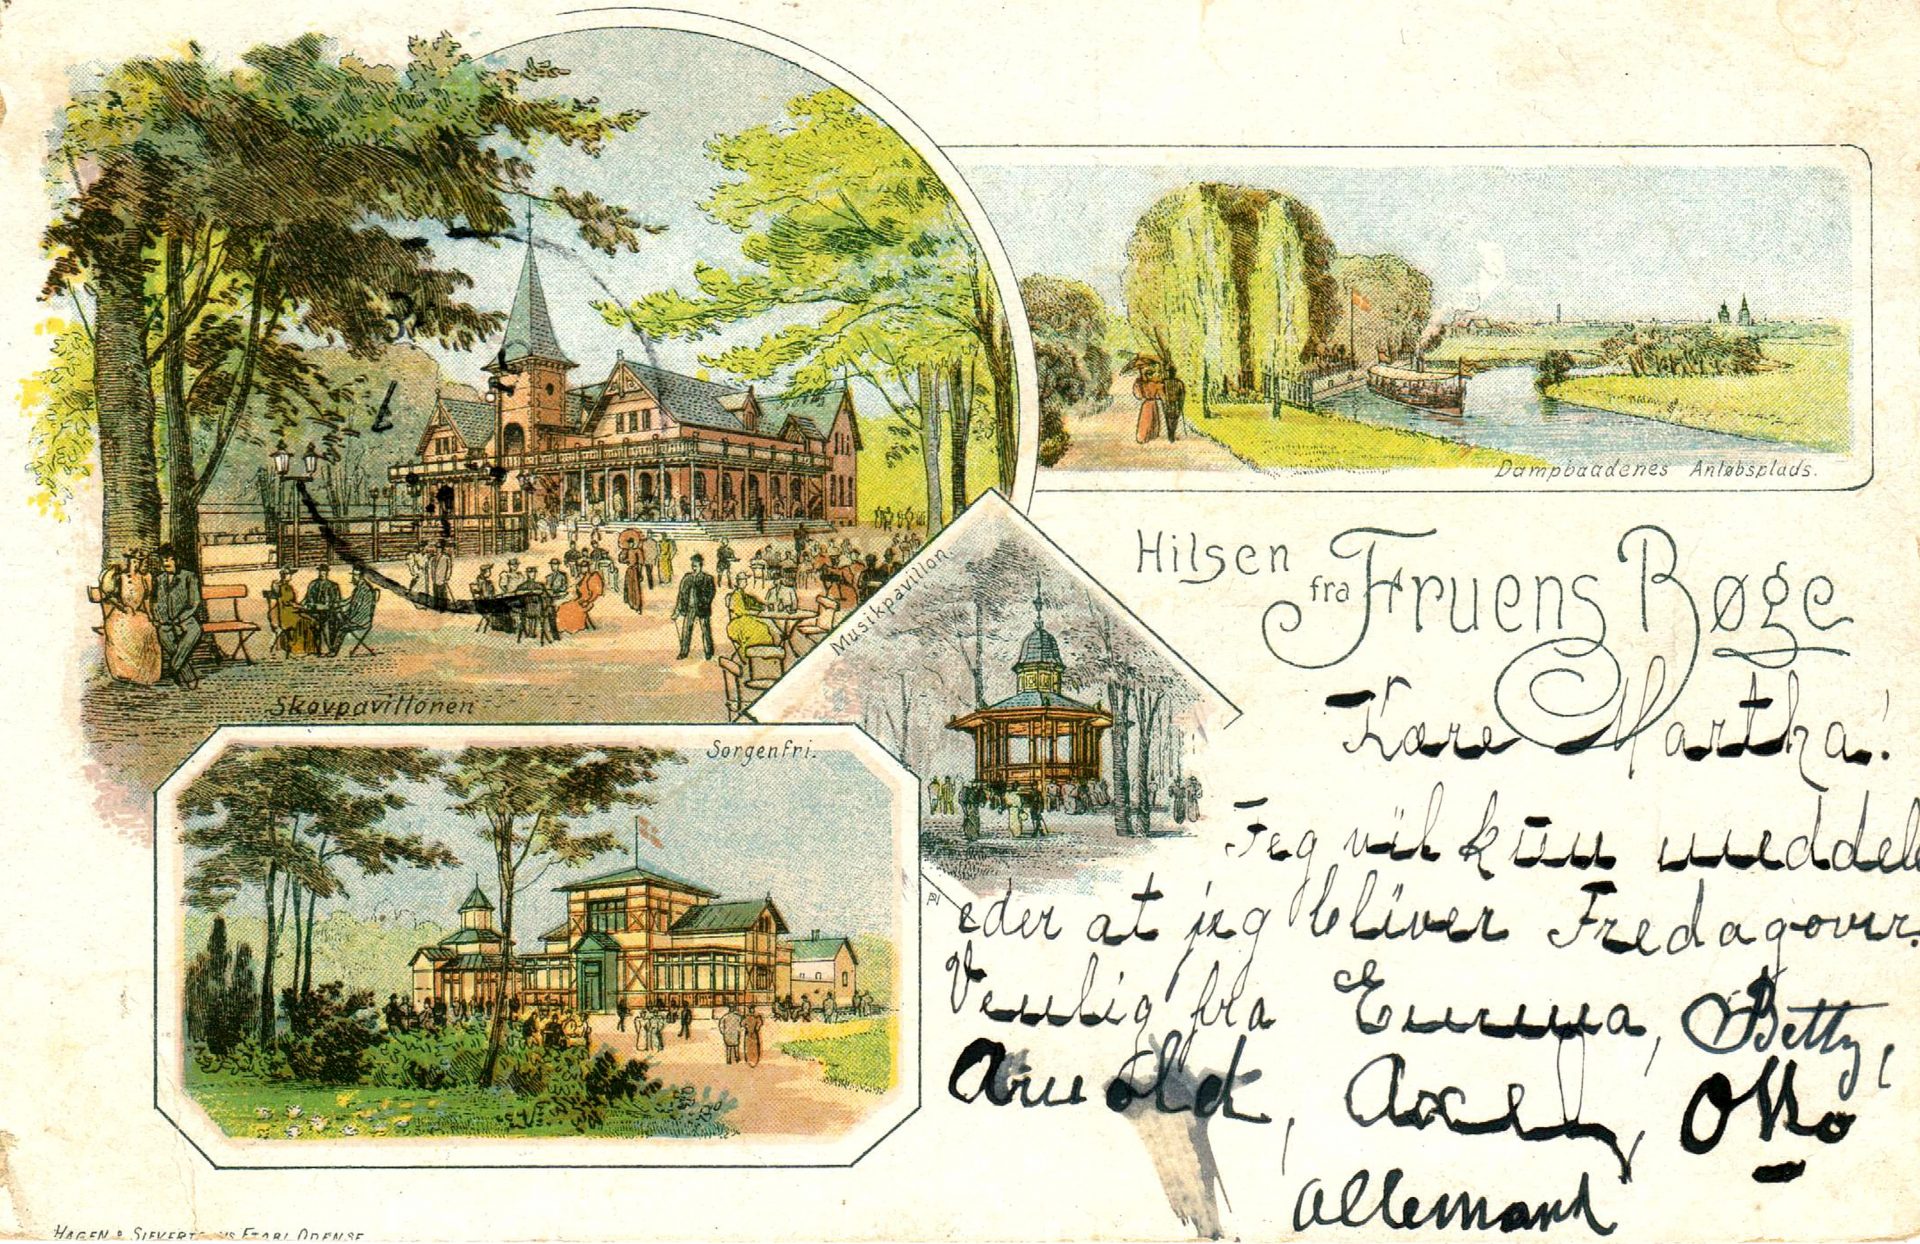 Skovpavillonen
Dampbaadenes Anløbsplads.
Musikpavillon.
Sorgenfri.
Hilsen
fra Fruens Bøge
Kære Martha!
Jeg vil kun meddele
eder at jeg bliver Fredag over.
Venlig fra Emma, Betty,
Arnold, Axel, Otto
Allemand
HAGEN & SIEVERT ODENSE